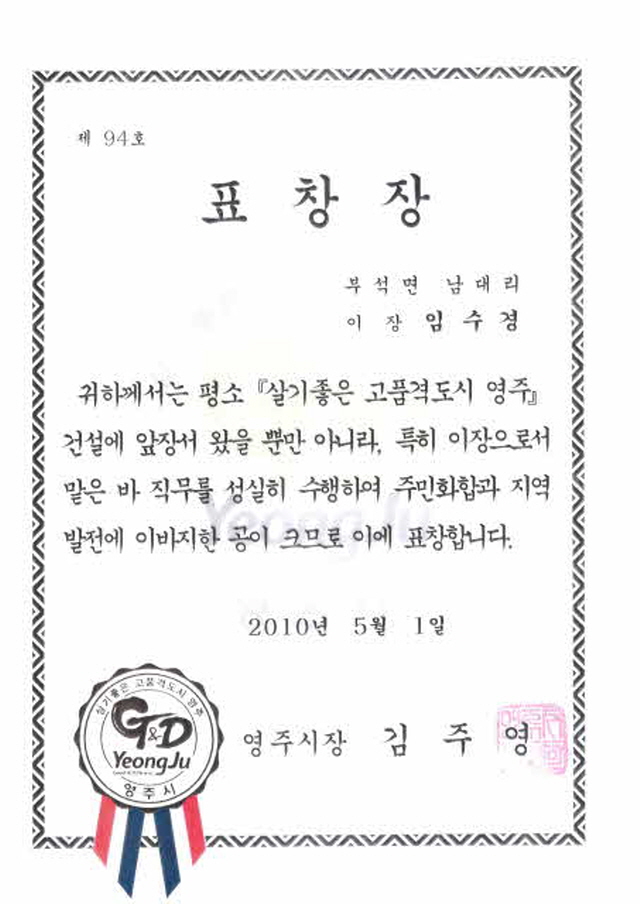 제 94호
표 창 장
부 석 면 남 대 리
이 장 임 수 경
귀하께서는 평소 『살기좋은 고품격도시 영주』
건설에 앞장서 왔을 뿐만 아니라, 특히 이장으로서
맡은 바 직무를 성실히 수행하여 주민화합과 지역
발전에 이바지한 공이 크므로 이에 표창합니다.
2010년 5월 1일
살기좋은 고품격도시 영주
G&D
YeongJu
영주시
영주시장 김 주 영
Yeong Ju